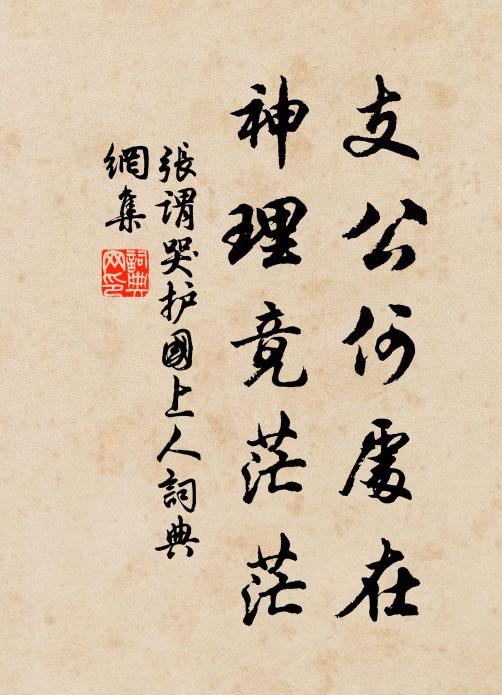 支公何處在
神理竟茫茫
張謂哭护國上人詞典
網集
詞典
网印